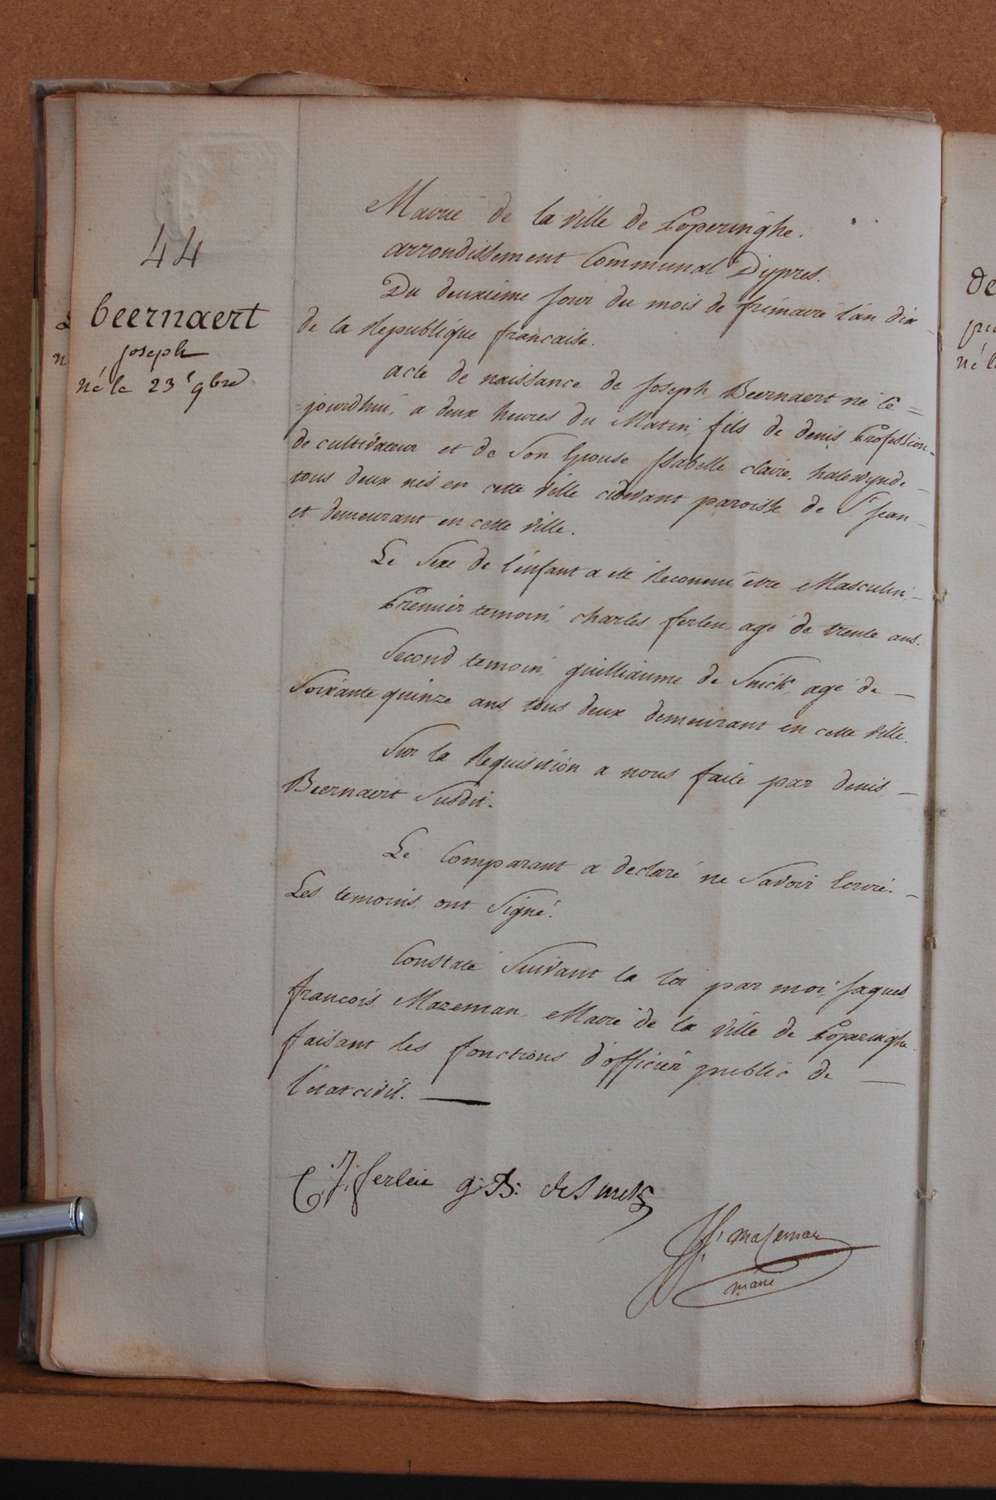 44
beernaert
joseph
né le 23e 9bre
Mairie de la ville de Poperinghe.
arrondissement Communal D'ypres.
Du deuxième jour du mois de frimaire l'an dix
de la Republique francaise.
acte de naissance de Joseph Beernaert né ce =
= jourdhui, a deux heures du Matin, fils de denis Profession
de cultivateur et de Son Epouse Isabelle claire,
tous deux nés en cette ville cidevant paroisse de St Jean
et demeurant en cette ville.
Le Sexe de l'enfant a été Reconnu être Masculin,
Premier temoin, charles ferleu, agé de trente ans.
Second temoin guilliaume de agé de
Soixante quinze ans tous deux demeurant en cette ville.
Sur la Requisition a nous faite par denis
Beernaert Susdit.
Le Comparant a declaré ne Savoir Ecrire.
Les temoins ont Signé.
Constaté Suivant la loi par moi, Jaques,
francois Mazeman, Maire de la Ville de Poperinghe
faisant les fonctions d'officier public de
l'état civil.
ferleu g: B:
Mazeman
maire
de
né l